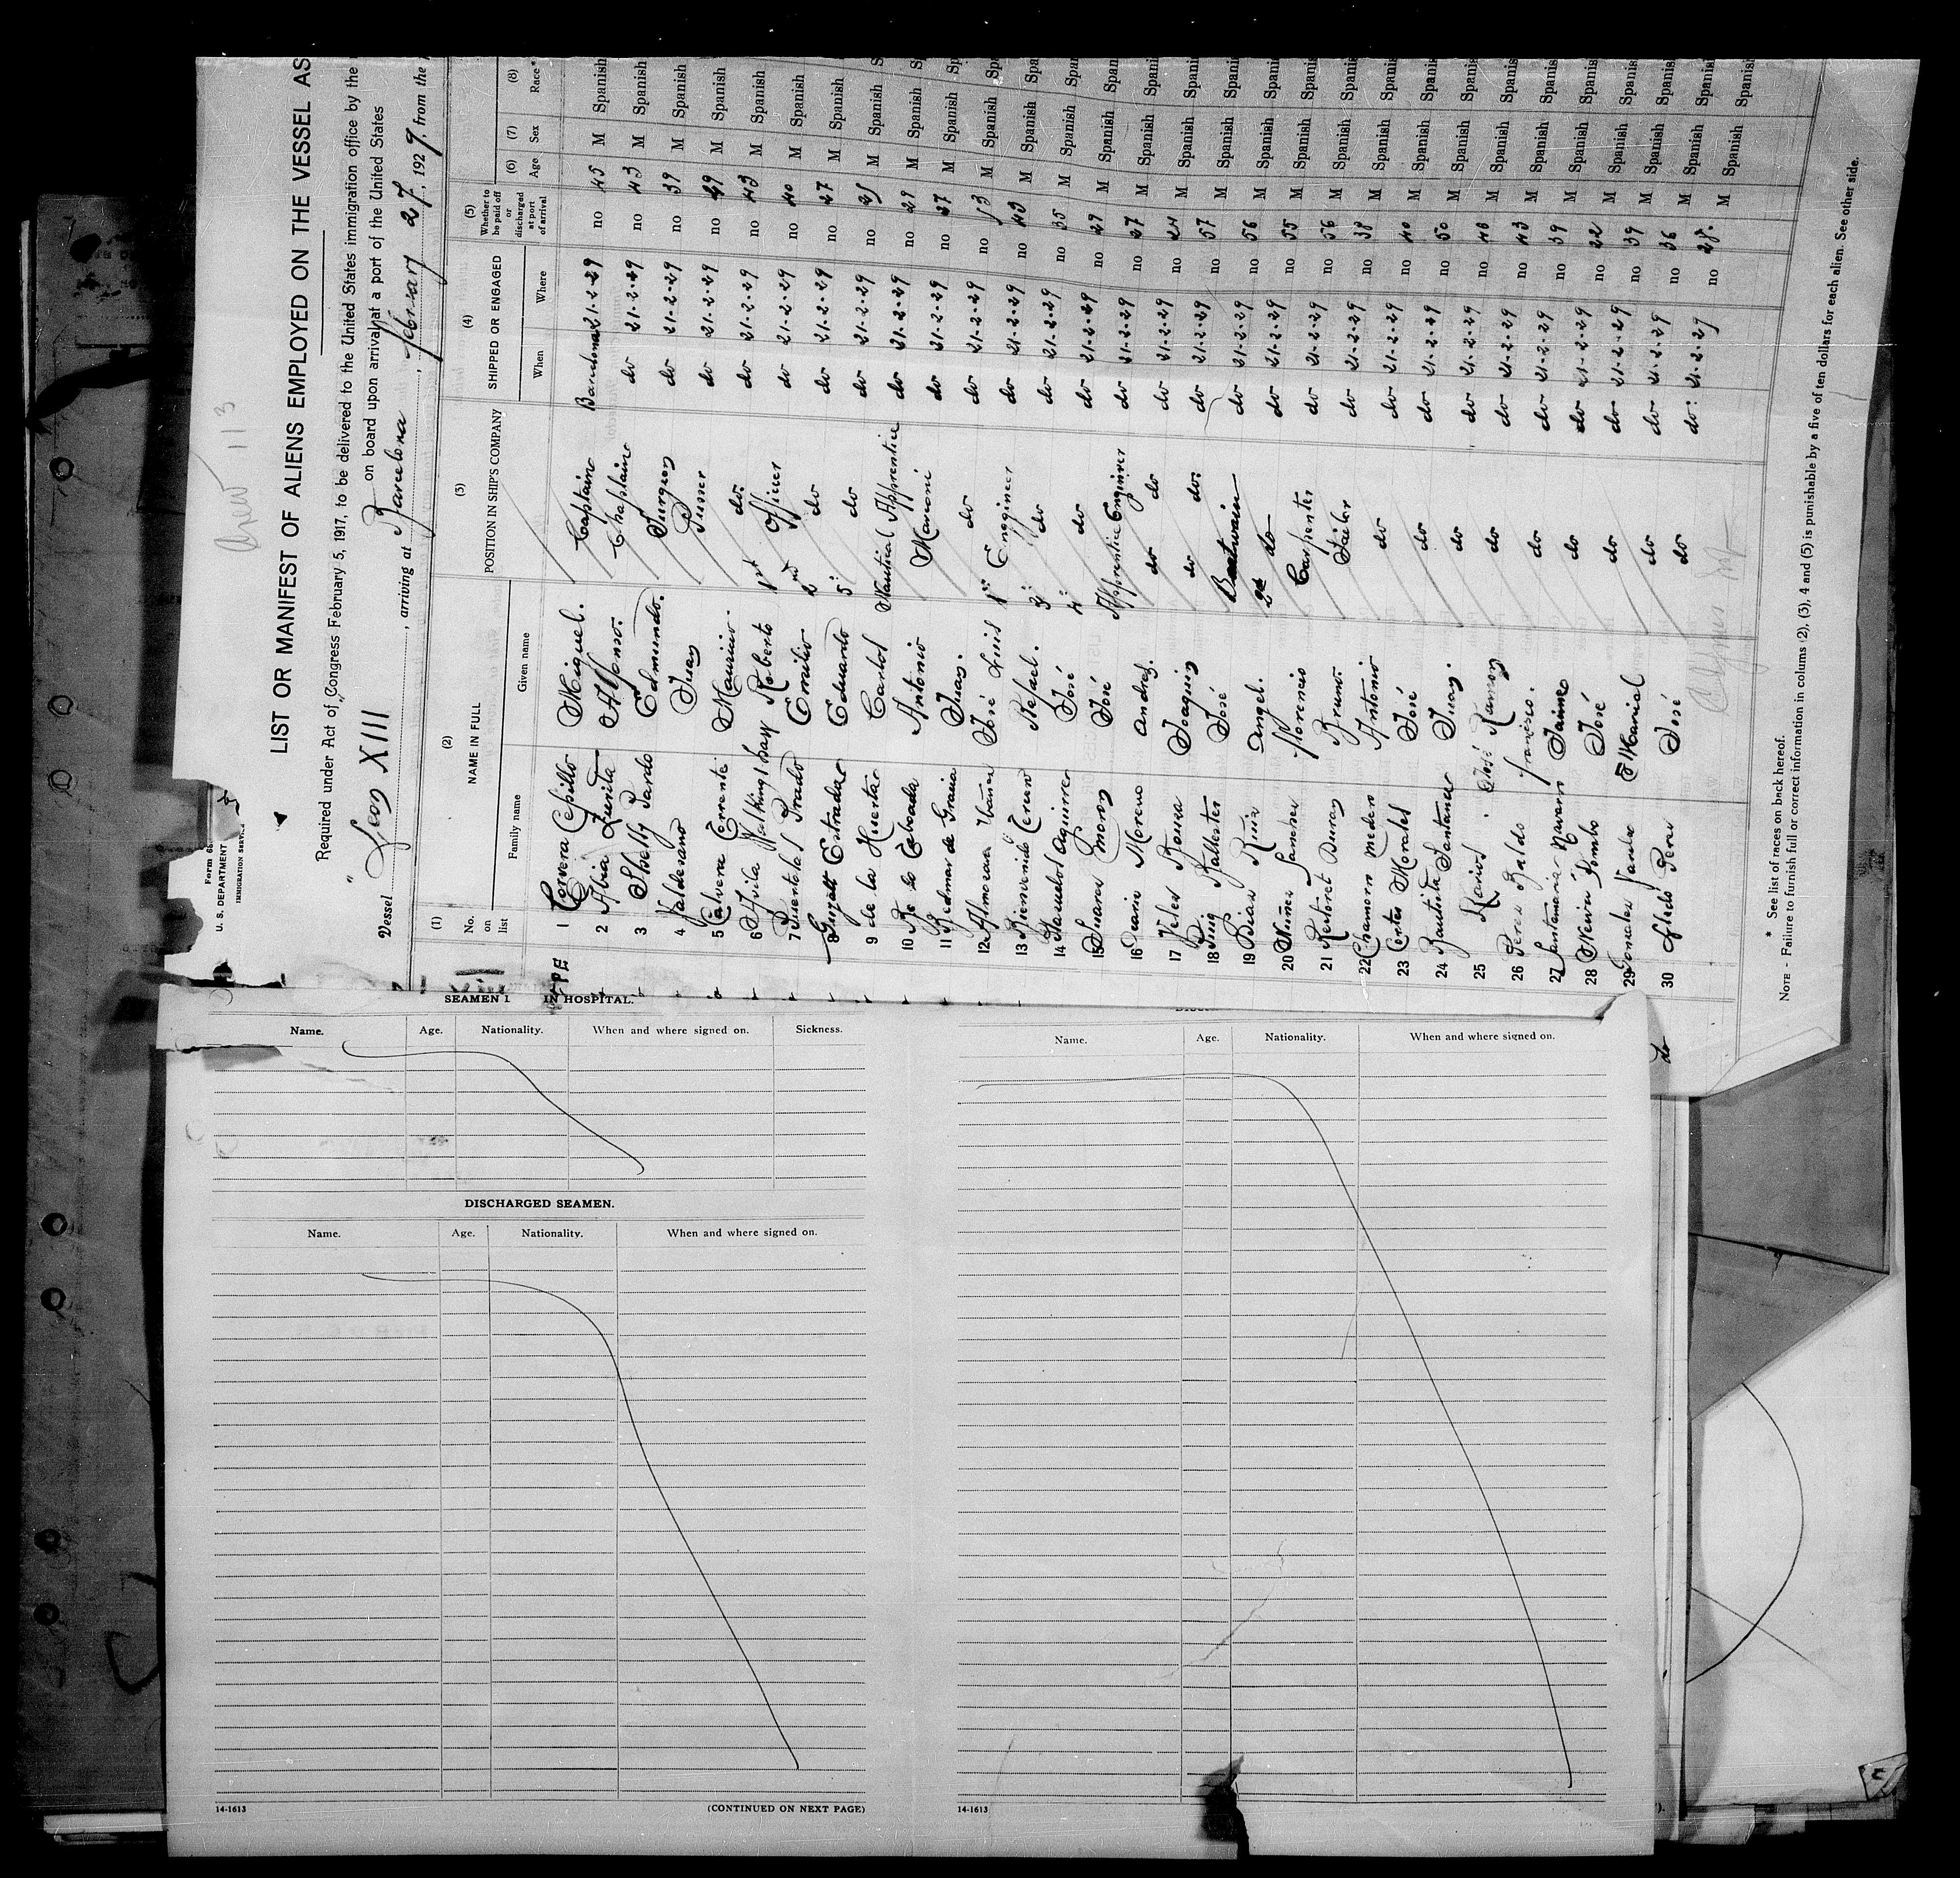 Crew 113
U. S. DEPARTMENT
IMMIGRATION SERVICE
LIST OR MANIFEST OF ALIENS EMPLOYED ON THE VESSEL AS
Required under Act of Congress February 5, 1917, to be delivered to the United States immigration office by the
on board upon arrival at a port of the United States
Vessel "Leon XIII", arriving at Barcelona, february 27, 1929, from the
(1) (2) (3) (4) (5) (6) (7) (8)
No. on list NAME IN FULL POSITION IN SHIP'S COMPANY SHIPPED OR ENGAGED Whether to be paid off or discharged at port of arrival Age Sex Race*
Family name Given name When Where
1 Corvera Casillo Miguel. Captain Barcelona 21-2-29 no 45 M Spanish
2 Abia Zurita Alfonso. Chaplain do 21-2-29 no 43 M Spanish
3 Shelly Pardo Edmundo. Surgeon do 21-2-29 no 39 M Spanish
4 Valdesano Juan Purser do 21-2-29 no 49 M Spanish
5 Calvera Torrente Mauricio. do. do 21-2-29 no 43 M Spanish
6 Avila Roberto 1st Officer do 21-2-29 no 40 M Spanish
7 Puentedes Prado Emilio 2nd do do 21-2-29 no 27 M Spanish
8 Estrada Eduardo 5º do do 21-2-29 no 25 M Spanish
9 de la Huerta Carlos Nautical Apprentice do 21-2-29 no 29 M Spanish
10 Antonio Marconi do 21-2-29 no 27 M Spanish
11 Bedmar de Gracia Juan. do do 21-2-29 no 53 M Spanish
12 Almoraca José Luis 1st Engineer do 21-2-29 no 43 M Spanish
13 Bienvenido Cerund Rafael. 3º do do 21-2-29 no 35 M Spanish
14 Aguirre José 4º do do 21-2-29 no 29 M Spanish
15 Suarez Limon José Apprentice Engineer do 21-2-29 no 27 M Spanish
16 Moreno Andres. do do do 21-2-29 no 24 M Spanish
17 Velez Bouza Joaquin do do. do 21-2-29 no 57 M Spanish
18 Puig Ballester José Boatswain do 21-2-29 no 56 M Spanish
19 Diaz Ruiz Angel. 2nd do do 21-2-29 no 55 M Spanish
20 Nuñez Sanchez florencio Carpenter do 21-2-29 no 56 M Spanish
21 Retoret Duran Bruno. Sailor do 21-2-29 no 38 M Spanish
22 Chamorro Medero Antonio do do 21-2-29 no 40 M Spanish
23 Cortes Morales José do do 21-2-29 no 50 M Spanish
24 Bautista Santana Juan. do do 21-2-29 no 40 M Spanish
25 Larios José Ramon do do 21-2-29 no 43 M Spanish
26 Perez Baldo francisco. do do 21-2-29 no 39 M Spanish
27 Santamaria Navarro Jaime do do 21-2-29 no 22 M Spanish
28 Neira Pombo José do do 21-2-29 no 39 M Spanish
29 Gonzalez Varela Marial do do 21-2-29 no 36 M Spanish
30 Perez José do do: 21-2-29 no 28. M Spanish
* See list of races on back hereof.
NOTE - Failure to furnish full or correct information in colums (2), (3), 4 and (5) is punishable by a five of ten dollars for each alien. See other side.
do
SEAMEN IN HOSPITAL.
Name. Age. Nationality. When and where signed on. Sickness.
DISCHARGED SEAMEN.
Name. Age. Nationality. When and where signed on.
14-1613 (CONTINUED ON NEXT PAGE)
Name. Age. Nationality. When and where signed on.
14-1613